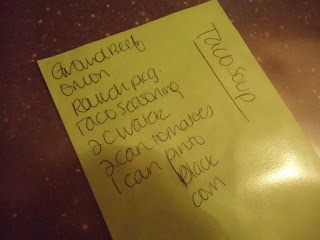 Taco Soup
Ground Beef
onion
Ranch pkg.
Taco Seasoning
2 C water
2 can tomatoes
1 can pinto
Black
corn